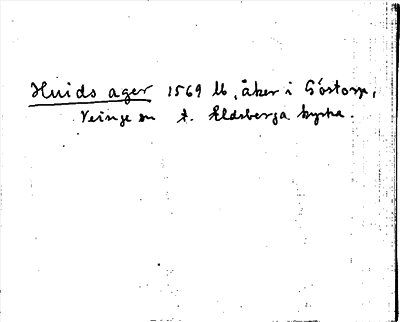 Huids ager 1569 lb, åker i Göstorp,
Veinge sn t. Eldsberga kyrka.